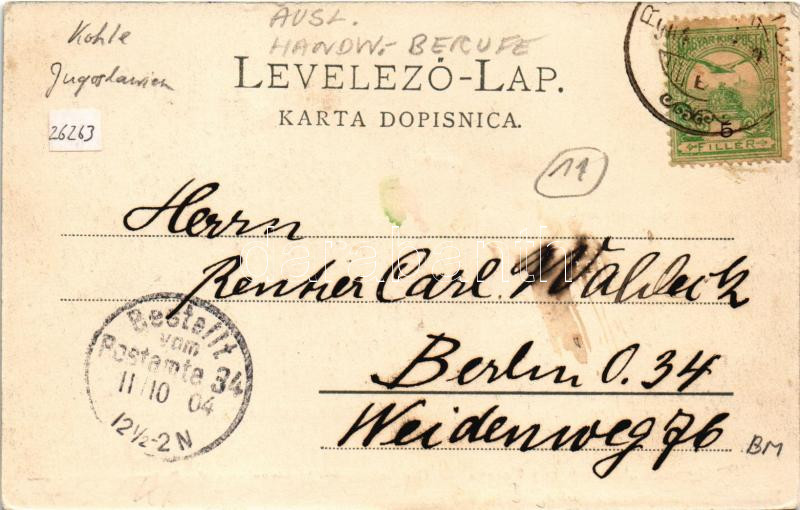 AUSL.
HANDW.- BERUFE
Kohle
Jugoslawien
26263
LEVELEZŐ-LAP.
KARTA DOPISNICA.
MAGYAR KIR. POSTA
5
FILLÉR
11
Herrn
Rentier Carl Waldeck
Berlin O. 34
Weidenweg 76
darabanth
Bestellt
vom
Postamte 34
11/10 04
12½-2N
BM